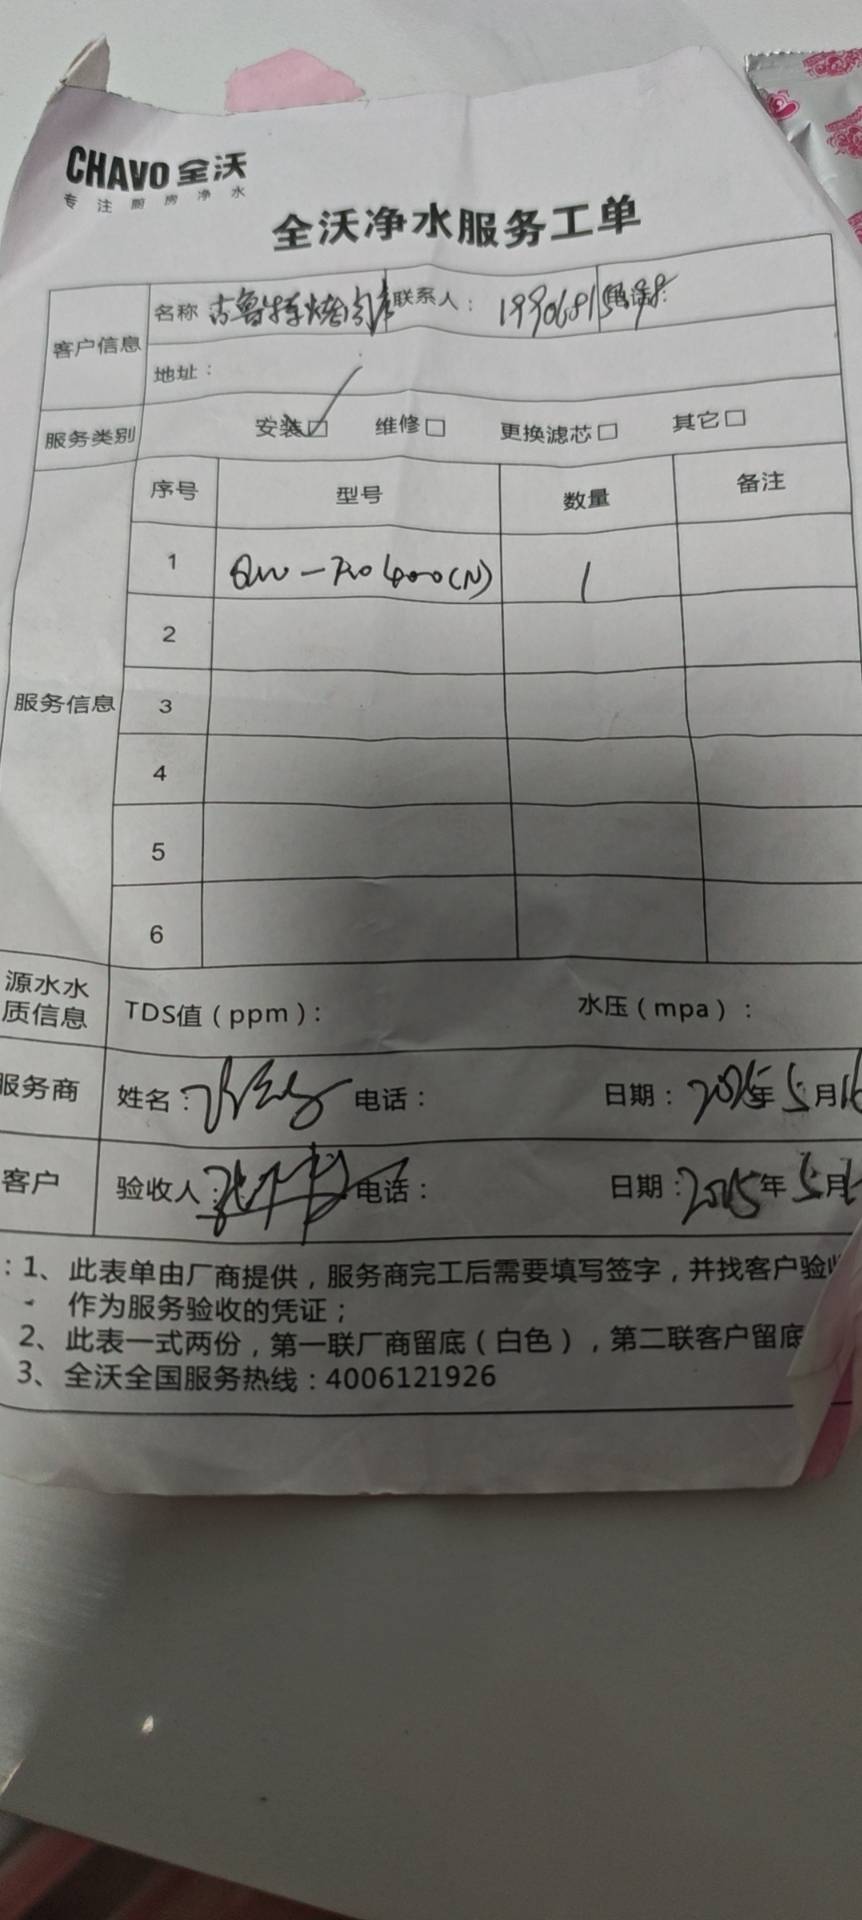 CHAVO 全沃
专注厨房净水
全沃净水服务工单
客户信息 名称 古鲁特烤肉店 联系人： 电话：
地址：
服务类别 安装☑ 维修□ 更换滤芯□ 其它□
服务信息 序号 型号 数量 备注
1 QW-RO400(N) 1
2
3
4
5
6
源水水质信息 TDS值（ppm）： 水压（mpa）：
服务商 姓名： 电话： 日期：2025年5月16
客户 验收人： 电话： 日期：2025年5月
：1、此表单由厂商提供，服务商完工后需要填写签字，并找客户验收
作为服务验收的凭证；
2、此表一式两份，第一联厂商留底（白色），第二联客户留底
3、全沃全国服务热线：4006121926